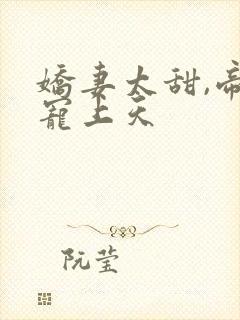 嬌妻太甜,帝
寵上天
阮莹